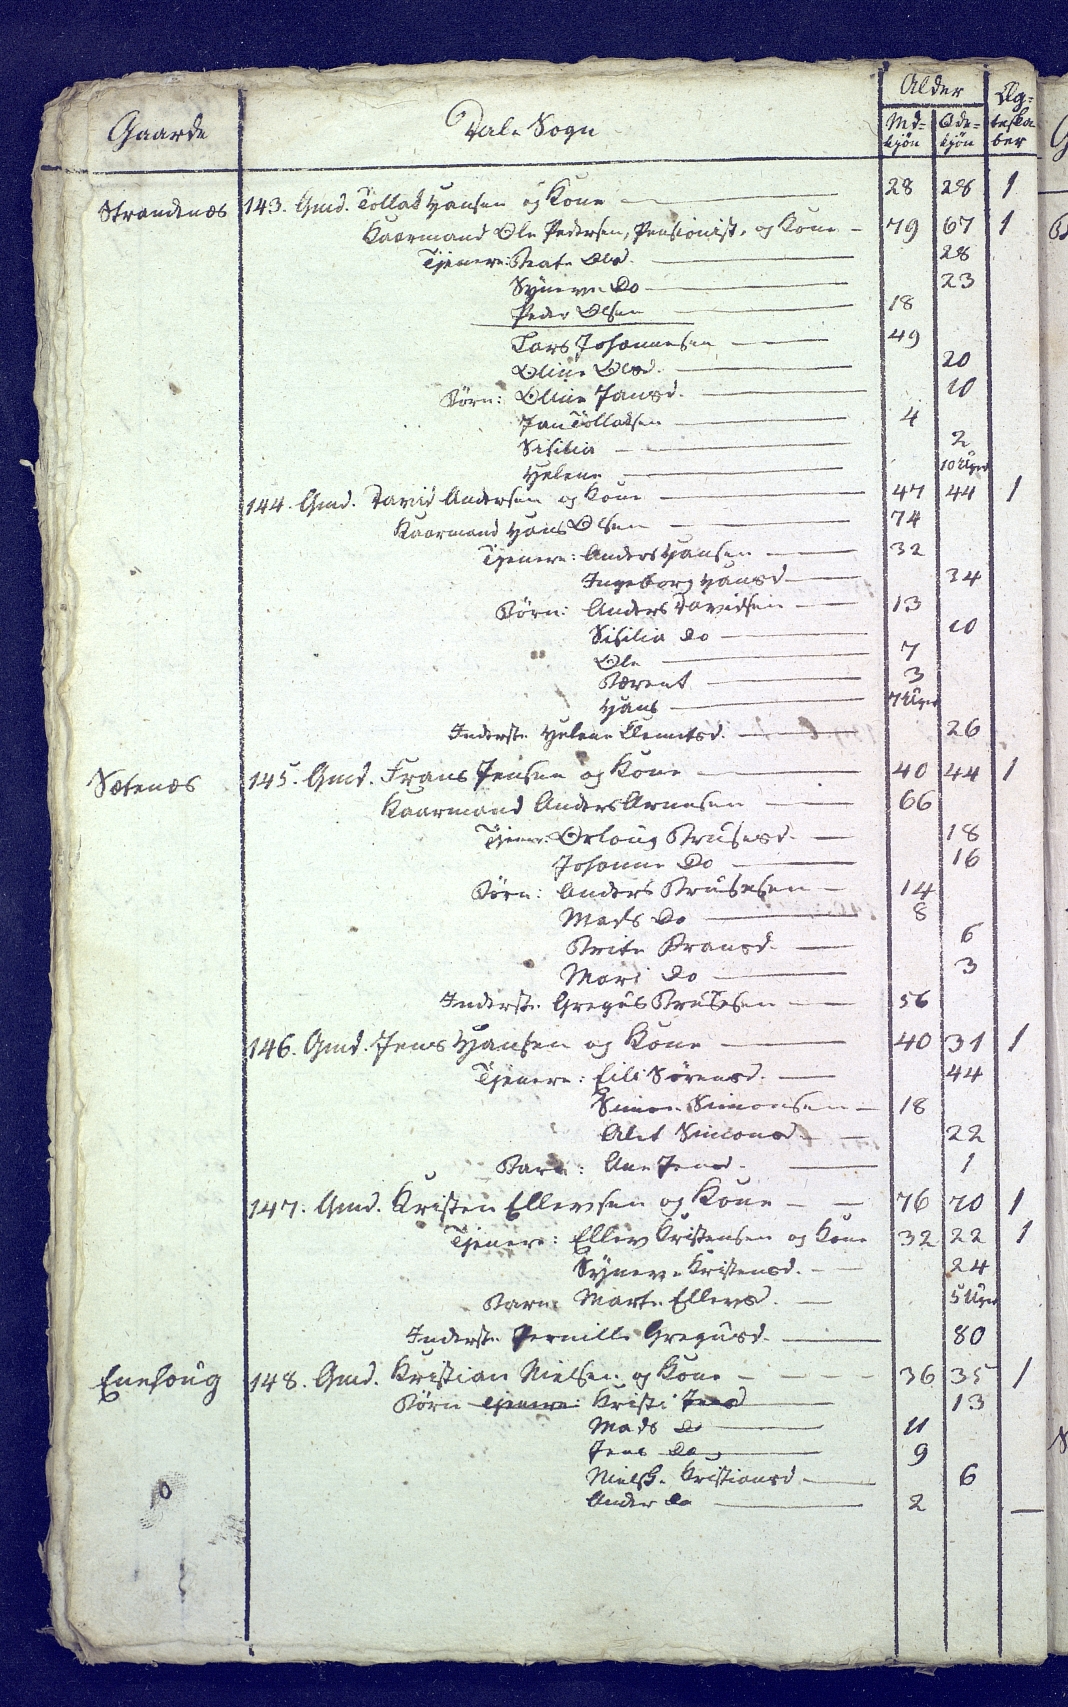 Alder
Gaarde Dale Sogn Md- Qde- Æg-
kjøn kjøn teska-
ber
Strandenæs 143. Gmd. Tollak Hansen og Kone 28 28 1
Kaarmand Ole Pedersen, Pensionist, og Kone 79 67 1
Tjenere: Beate Olsd. 28
Synneve Do 23
Peder Olsen 18
Lars Johannesen 49
Oline Olsd. 20
Börn: Oline Jansd. 10
Jan Tollaksen 4
Sisilia 2
Helene 10 Uger
144. Gmd. David Andersen og Kone 47 44 1
Kaarmand Hans Olsen 74
Tjenere: Anders Hansen 32
Ingeborg Hansd. 34
Börn: Anders Davidsen 13
Sisilia Do 10
Ole 7
Bærent 3
Hans 7 Uger
Inderste Helene Clemitsd. 26
Sætenæs 145. Gmd. Frans Jensen og Kone 40 44 1
Kaarmand Anders Arnesen 66
Tjener: Orloug Brusesd. 18
Johanne Do 16
Börn: Anders Brusesen 14
Mads Do 8
Brite Fransd. 6
Mari Do 3
Inderste Gregus Brusesen 56
146. Gmd. Jens Hansen og Kone 40 31 1
Tjenere: Eili Sørensd. 44
Simon Simonsen 18
Alet Simonsd. 22
Barn: Ane Jensd. 1
147. Gmd. Kristen Ellevsen og Kone 76 70 1
Tjenere: Ellev Kristensen og Kone 32 22 1
Synneve Kristensd. 24
Barn: Marte Ellevsd. 5 Uger
Inderste Pernille Gregusd. 80
Enehoug 148. Gmd. Kristian Nielsen og Kone 36 35 1
Börn Tjenere: Kristi Jensd 13
Mads Do 11
Jens Do 9
Kristiansd. 6
Ander Do 2